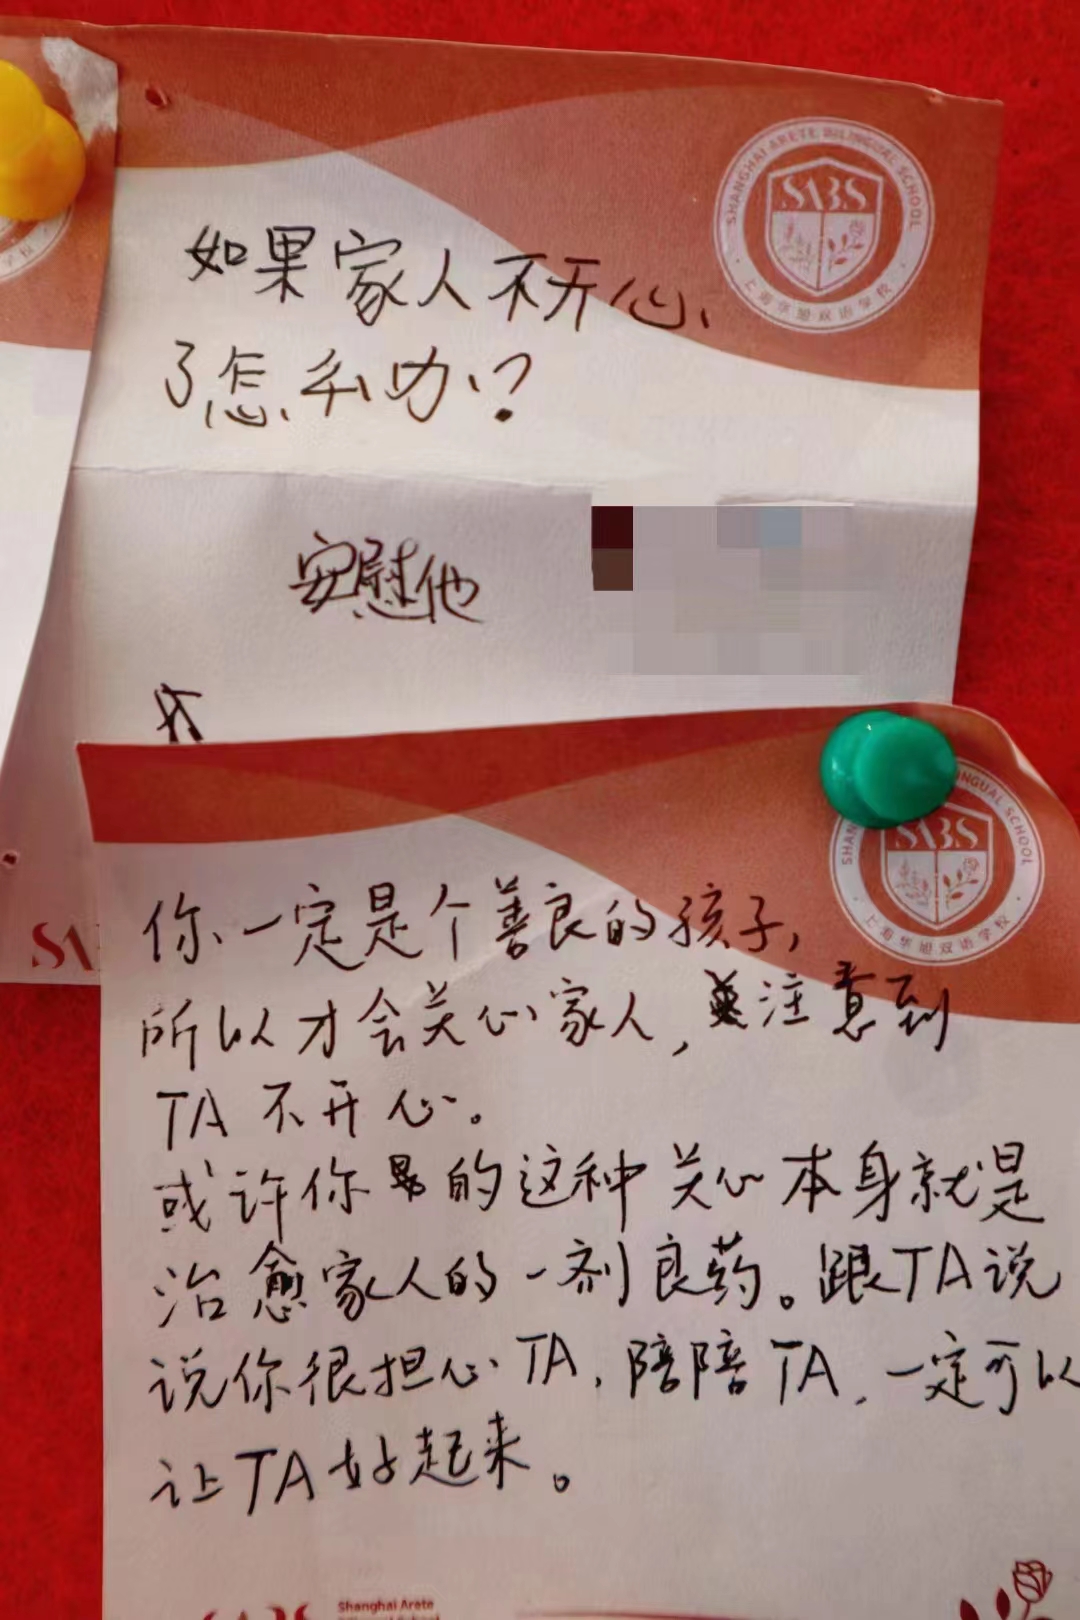 SHANGHAI ARETE BILINGUAL SCHOOL
SABS
上海华旭双语学校
如果家人不开心
了怎么办?
安慰他
SA
SABS
上海华旭双语学校
你一定是个善良的孩子,
所以才会关心家人,注意到
TA不开心。
或许你的这种关心本身就是
治愈家人的一剂良药。跟TA说
说你很担心TA,陪陪TA,一定可以
让TA好起来。
Shanghai Arete